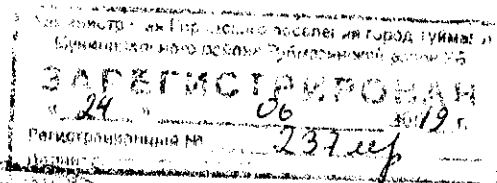 Администрация Городского поселения город Туймазы
муниципального района Туймазинский район РБ
ЗАРЕГИСТРИРОВАН
« 24 » 06 2019 г.
Регистрационный № 237 мр